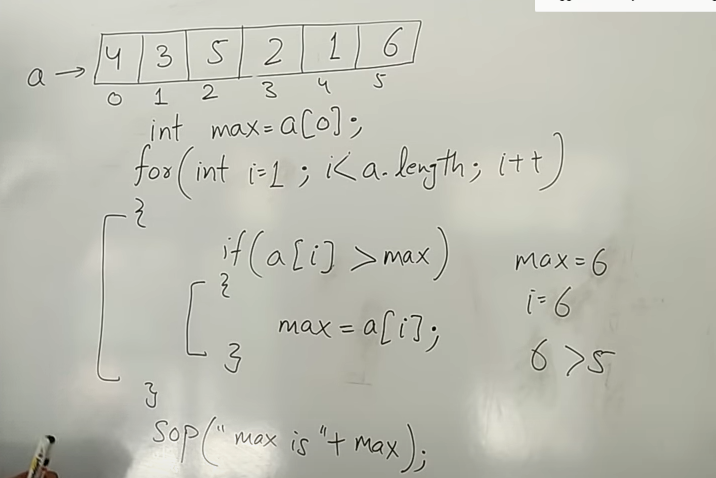 a → 4 3 5 2 1 6
0 1 2 3 4 5
int max=a[0];
for(int i=1; i<a.length; i++)
{
if(a[i] >max)
{
max=a[i];
}
}
SOP("max is"+ max);
max=6
i=6
6>5